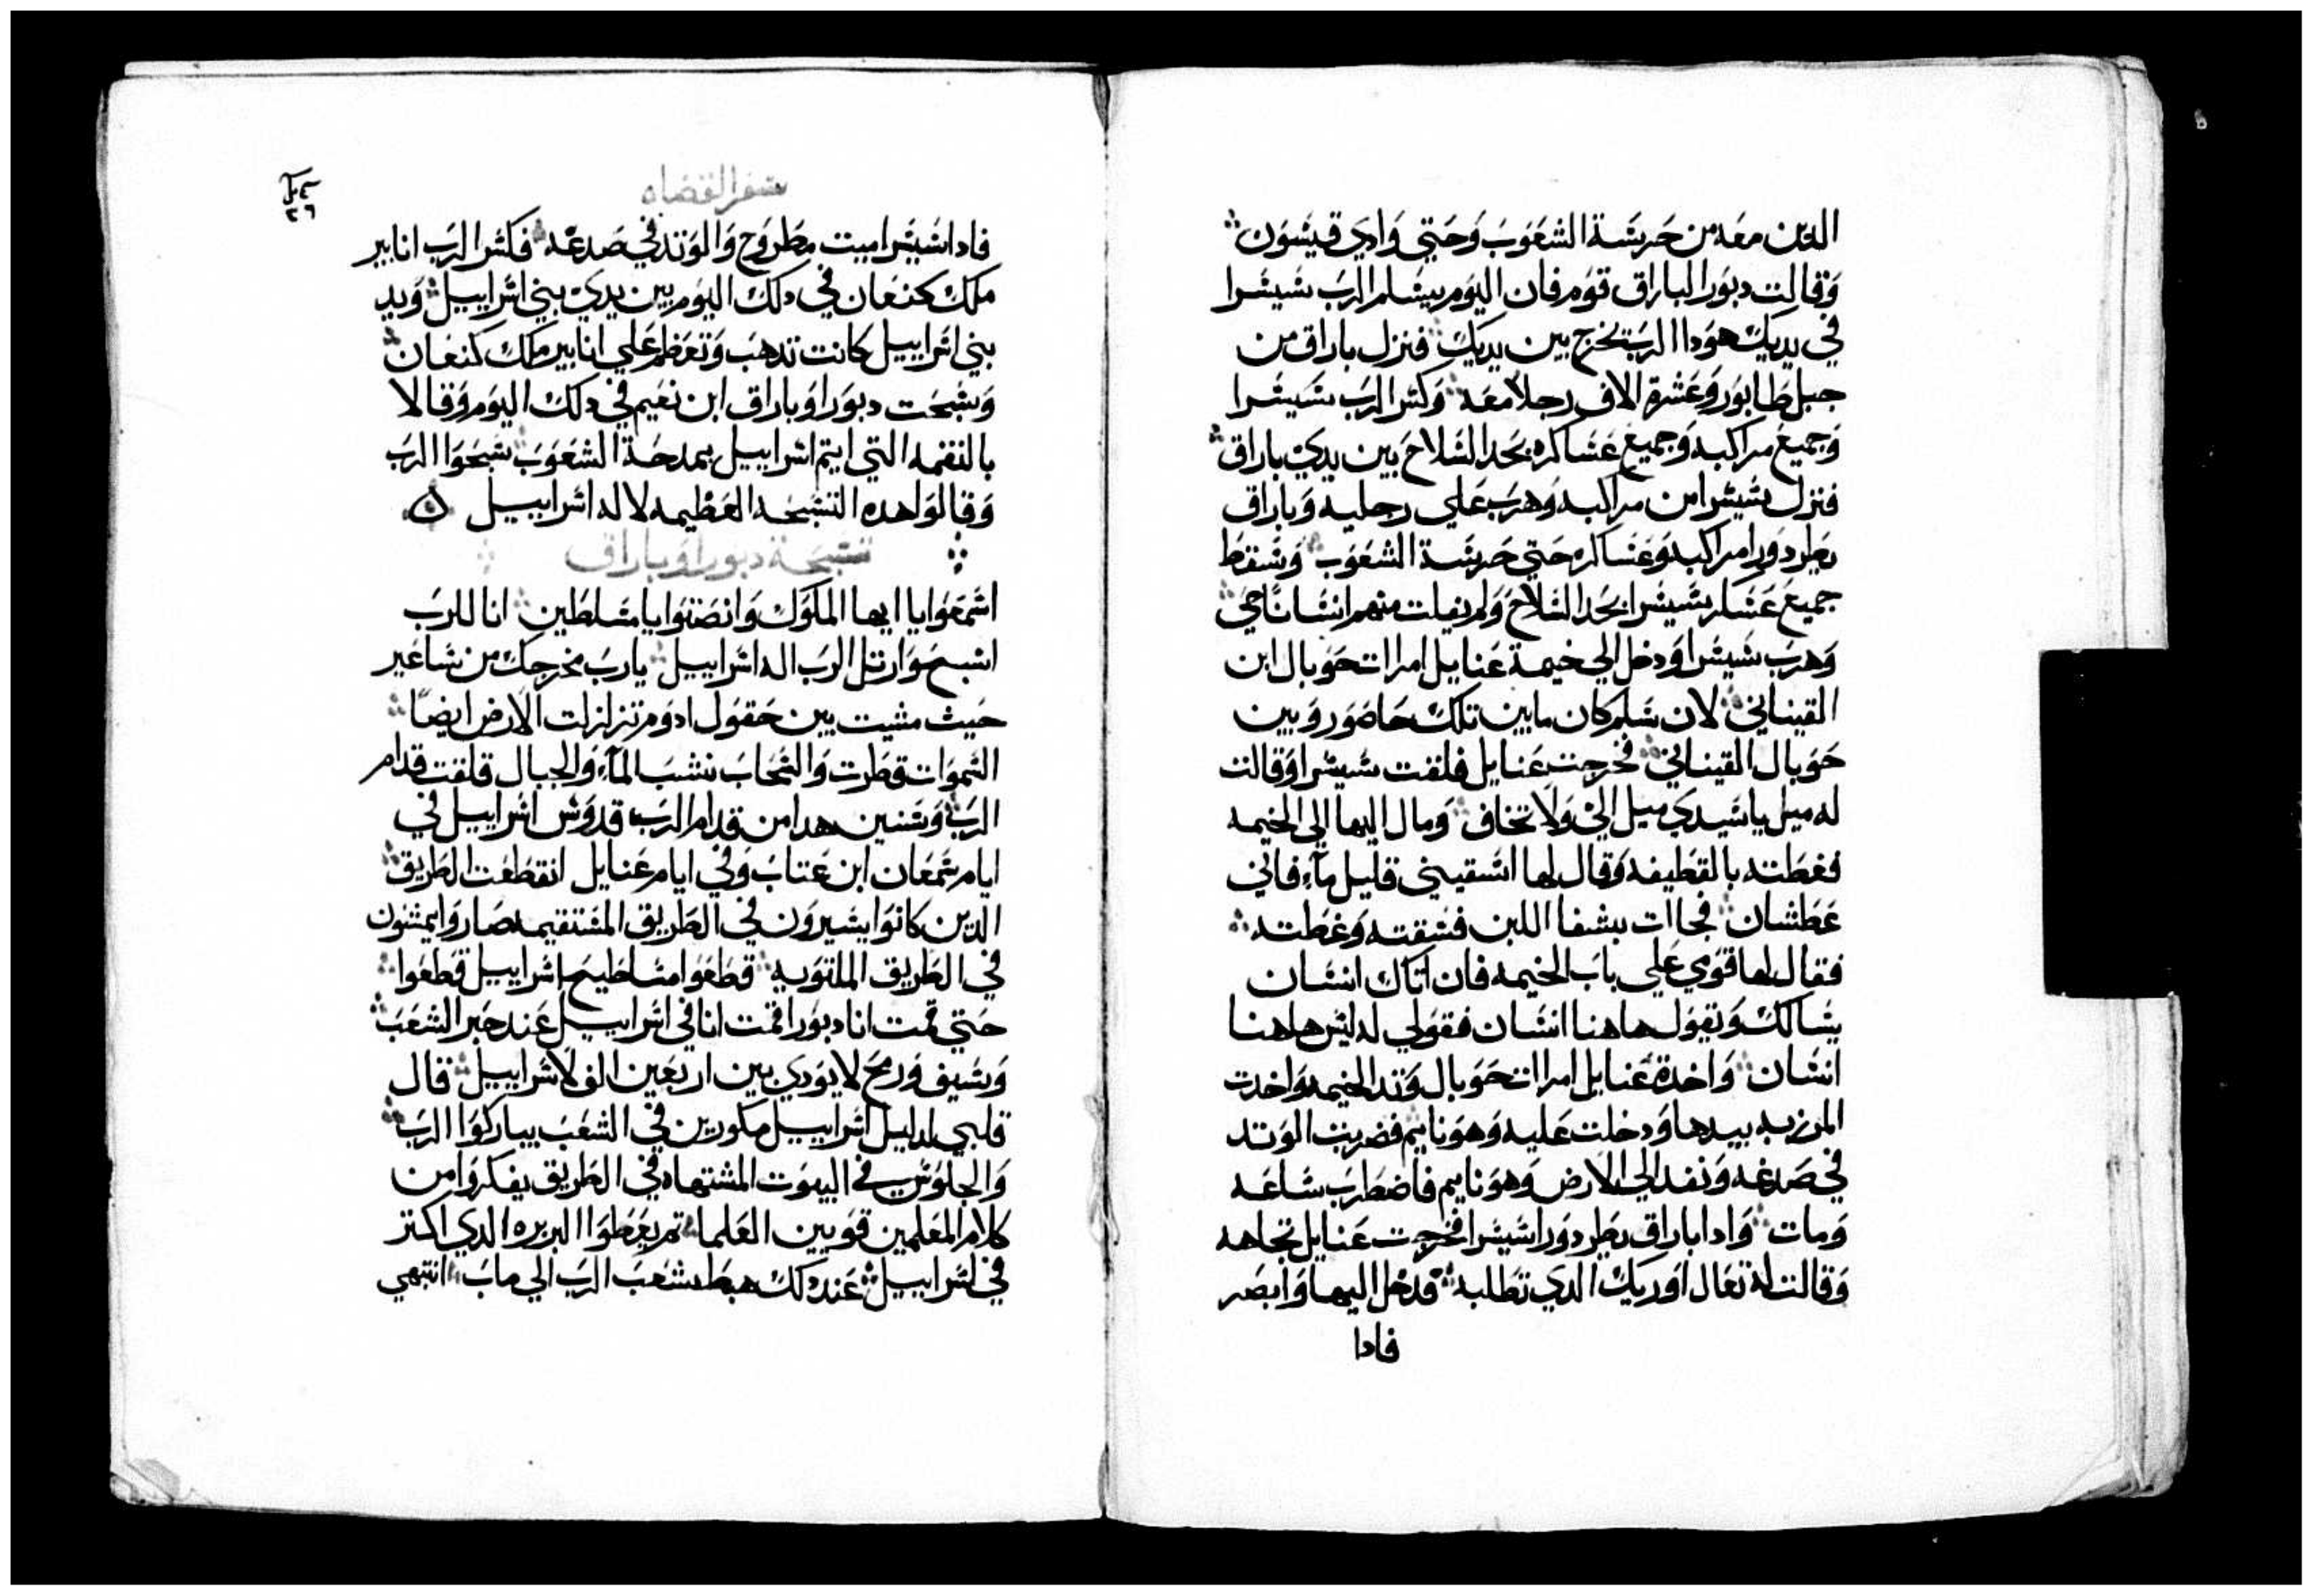 الدين معه من حريشة الشعوب وحتي وادي قيشون
وقالت دبورا لباراق قوم فان اليوم يسلم الرب شيشرا
في يديك هودا الرب يخرج بين يديك فنزل باراق من
جبل طابور وعشرة الاف رجلا معه وكسر الرب شيشرا
وجميع مراكبه وجميع عساكره بحد السلاح بين يدي باراق
فنزل شيشرا من مراكبه وهرب علي رجليه وباراق
يطرد ورا مراكبه وعساكره حتي حريشة الشعوب وسقط
جميع عساكر شيشرا بحد السلاح ولم يفلت منهم انسانا حي
وهرب شيشرا ودخل الي خيمة عنايل امرات حوبال ابن
القيناني لان سلم كان مابين تلك حاصور وبين
حوبال القيناني فخرجت عنايل فلقت شيشرا وقالت
له ميل ياسيدي ميل الي ولا تخاف ومال اليها الي الخيمه
فغطته بالقطيفه وقال لها اسقيني قليل مآء فاني
عطشان فجاات بسقا اللبن فسقته وغطته
فقال لها قومي علي باب الخيمه فان اتاك انسان
يسالك وتقول هاهنا انسان فقولي له ليس هاهنا
انسان واخدة عنايل امرات حوبال وتد الخيمه واخدت
المرزبه بيدها ودخلت عليه وهو نايم فضربت الوتد
في صدغه ونفد الي الارض وهو نايم فاضطرب ساعه
ومات وادا باراق يطرد ورا شيشرا فخرجت عنايل تجاهه
وقالت له تعال اوريك الدي تطلبه فدخل اليها وابصر
فادا
سفر القضاه
٢٦
فادا شيشرا ميت مطروح والوتد في صدغه فكسر الرب انابير
ملك كنعان في دلك اليوم بين يدي بني اسراييل ويد
بني اسراييل كانت تدهب وتعظم علي انابير ملك كنعان
وسبحت دبورا وباراق ابن نعيم في دلك اليوم وقالا
بالنقمه التي ايتم اسراييل بمدحة الشعوب سبحوا الرب
وقالوا هده التسبحه العظيمه لاله اسراييل
تسبحة دبورا وباراق
اسمعوا يا ايها الملوك وانصتوا يا مسلطين انا للرب
اسبح وارتل الرب اله اسراييل يارب مخرجك من ساعير
حيث مشيت بين حقول ادوم تزلزلت الارض ايضا
السموات قطرت والسحاب نشب المآء والجبال قلقت قدام
الرب وسنين هدا من قدام الرب قدوس اسراييل في
ايام سمعان ابن عتاب وفي ايام عنايل انقطعت الطريق
الدين كانوا يسيرون في الطريق المستقيمه صاروا يمشون
في الطريق الملتويه قطعوا مساطيح اسراييل قطعوا
حتي قمت انا دبورا قمت انا في اسراييل عند خبر الشعب
وسيف ورمح لا يودي بين اربعين الف لاسراييل قال
قلبي لدليل اسراييل مكورين في الشعب يباركوا الرب
والجلوس في البيوت المشتهاه في الطريق يفكروا من
كلام المعلمين قويين العلما تم يعطوا البربره الدي اكتر
في اسراييل عند دلك هبط شعب الرب الي ماب انتبهي